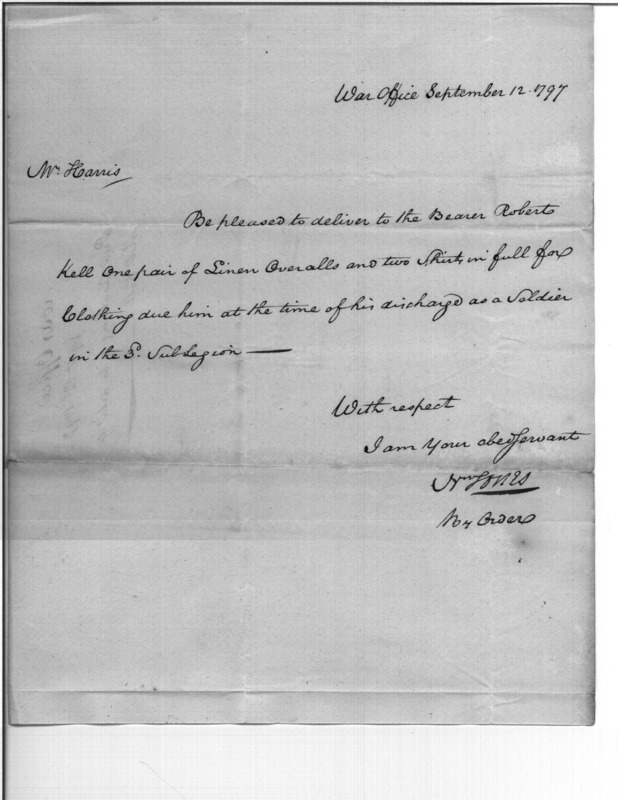 War Office September 12. 1797
Mr. Harris
Be pleased to deliver to the Bearer Robert
Kell One pair of Linen Overalls and two Shirts, in full for
Clothing due him at the time of his discharge as a Soldier
in the 3d. SubLegion —
With respect
I am Your obed Servant
Nw JONES
By Order